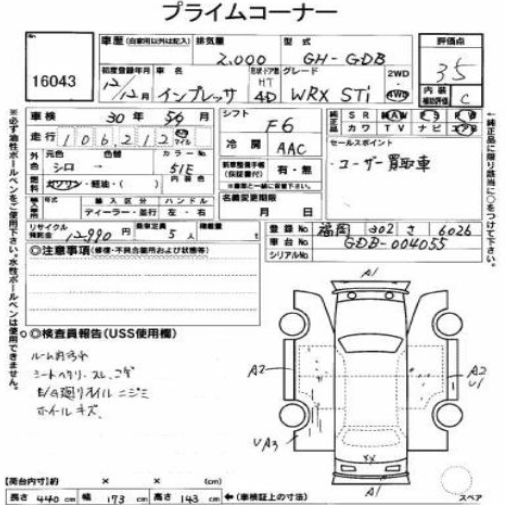 プライムコーナー
16043
車歴 (自家用以外は記入) 排気量 2,000 型式 GH-GDB 評価点 35
初度登録年月 12/12月 車名 インプレッサ 形状・ドア数 HT 4D グレード WRX STi 2WD・4WD 内装 補助評価 C
車検 30年 5月 シフト F6
純正品 SR AW PS PW
カワ TV ナビ
走行 106,212 マイル 冷房 AAC
セールスポイント
・ユーザー買取車
外色 元色 シロ 色替 カラーNo. 51E
新車整備手帳 (保証書付) 有・無
※書面と一緒に保管下さい。
燃料 ガソリン・軽油・( )
輸入車 年式 輸入区分 ハンドル
ディーラー・並行 左・右
名義変更期限 月 日
リサイクル預託金 12,990円 乗車定員 5人 積載量
登録No 福岡 302 さ 6026
車台No GDB-004055
シリアルNo
◎注意事項(修復・不具合箇所および状態等)
◎検査員報告(USS使用欄)
シートヘタリ
E/G廻りオイルニジミ
ホイールキズ
A1
A2
A2
U1
UA3
XX
A1
スペア
【荷台内寸】約 × × (cm)
長さ 440 cm 幅 173 cm 高さ 143 cm ←(車検証上の寸法)
※必ず油性ボールペンをご使用下さい。水性ボールペンは使用できません。
純正品に限り該当に○をつけて下さい。